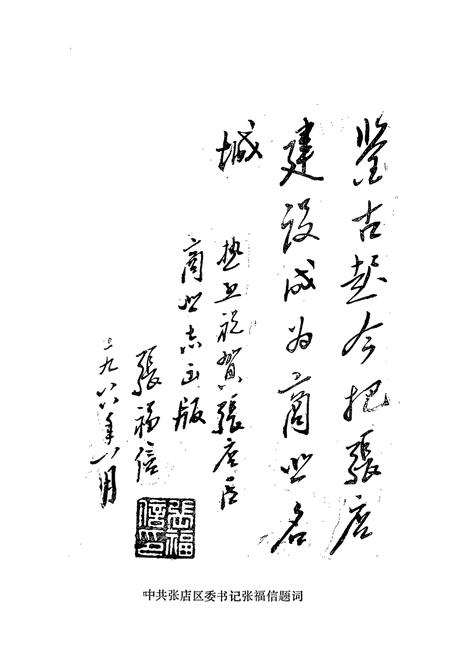 鉴古今把張店
建设成为商业名
城
热烈祝贺張店区
商业志出版
張福信
一九八八年八月
張福信印
中共张店区委书记张福信题词